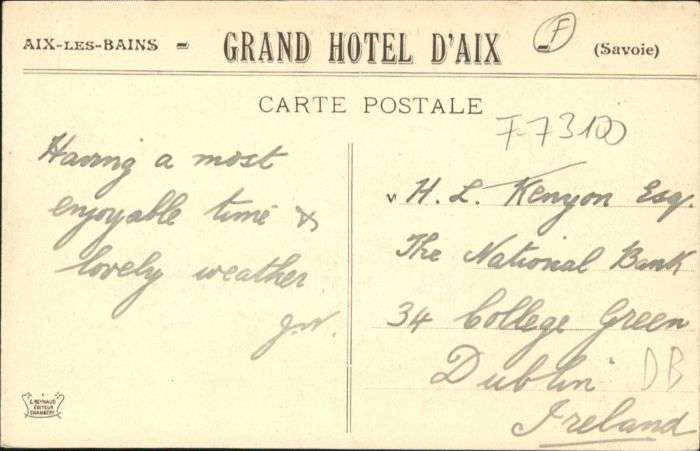 AIX-LES-BAINS - GRAND HOTEL D'AIX - (Savoie)
F
CARTE POSTALE
F-73100
Having a most
enjoyable time &
lovely weather
J.N.
H. L. Kenyon Esq.
The National Bank
34 College Green
Dublin
DB
Ireland
E. REYNAUD
ÉDITEUR
CHAMBÉRY